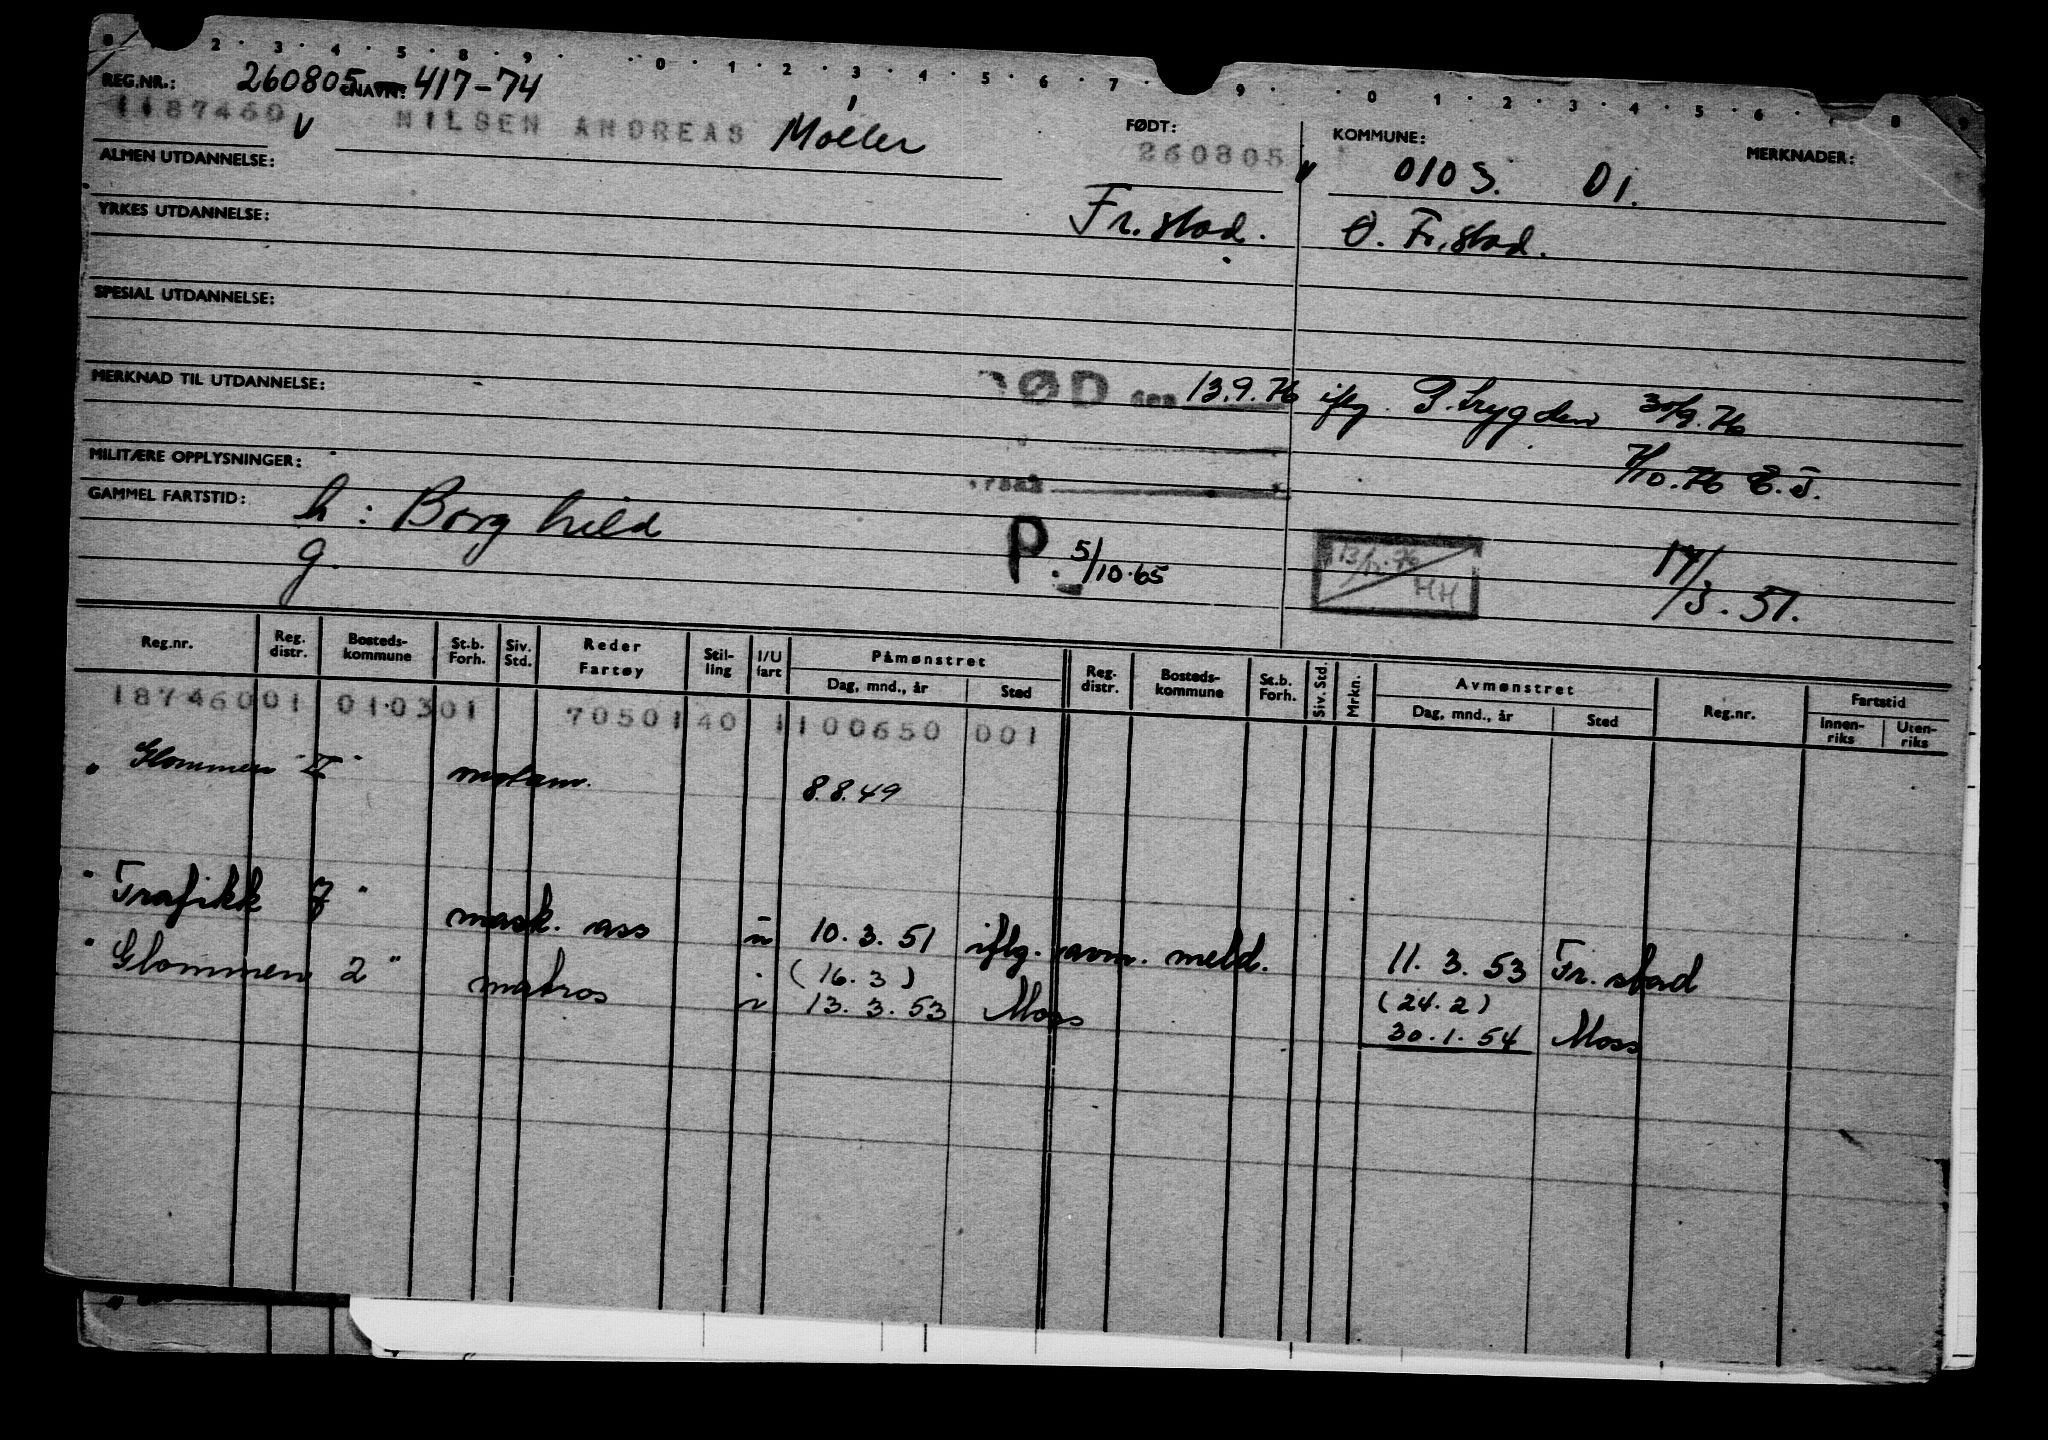 2 3 4 5 8 9 0 1 2 3 4 5 6 7 9 0 1 2 3 4 5 6 7 8 9
REG.NR.: 260805 NAVN: 417-74
187460 V NILSEN ANDREAS Møller FØDT: 260805 V KOMMUNE: 0103. 01. MERKNADER:
ALMEN UTDANNELSE:
YRKES UTDANNELSE: Fr.stad. Ø. Fr.stad.
SPESIAL UTDANNELSE:
MERKNAD TIL UTDANNELSE: DØD den 13.9.76 iflg. P.trygden 30/9.76
MILITÆRE OPPLYSNINGER: 7/10.76 E.J.
GAMMEL FARTSTID: h: Borghild
g. P. 5/10.65 HH 17/3.51.
Reg.nr. Reg. distr. Bosteds-kommune St.b. Forh. Siv. Std. Reder Fartøy Stil-ling I/U fart Påmønstret Dag, mnd., år Sted Reg. distr. Bosteds-kommune St.b. Forh. Siv. Std. Mrkn. Avmønstret Dag, mnd., år Sted Reg.nr. Fartstid Innen-riks Uten-riks
187460 01 0103 01 7050140 1 100650 001
"Glommen II" motorm. 8.8.49
"Trafikk 7" mask. ass u 10.3.51 iflg. avm. meld. 11.3.53 Fr.stad
(16.3) (24.2)
"Glommen 2" matros 13.3.53 Moss 30.1.54 Moss